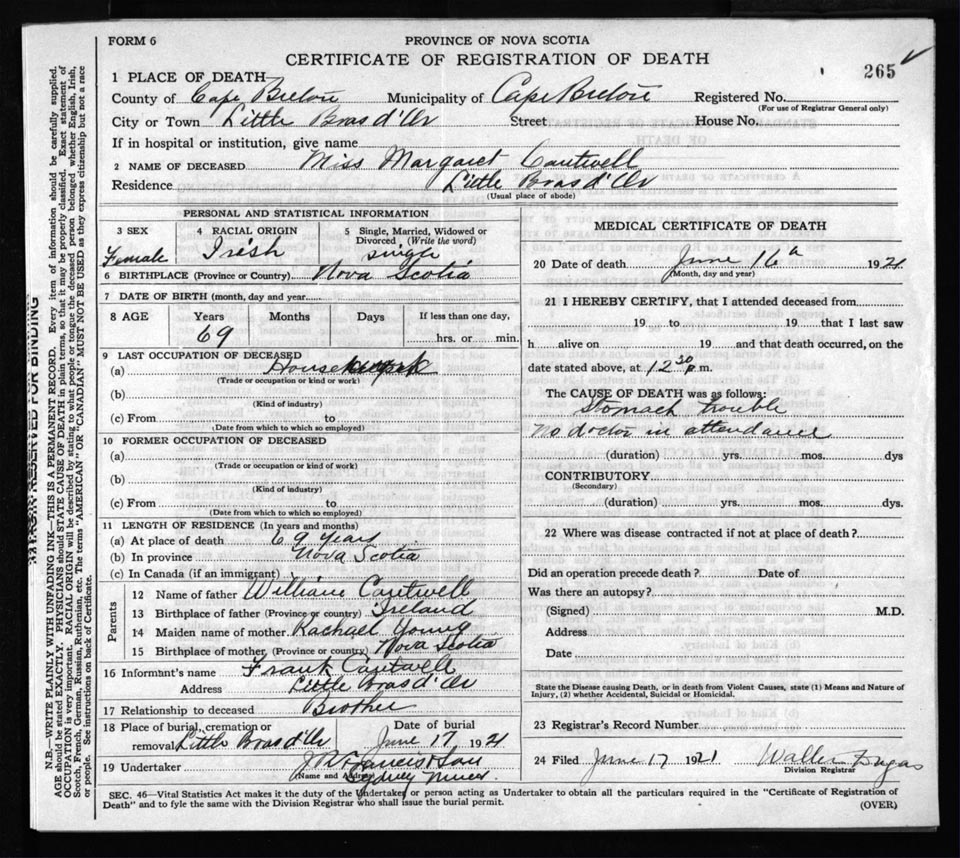 FORM 6
PROVINCE OF NOVA SCOTIA
CERTIFICATE OF REGISTRATION OF DEATH
265
1 PLACE OF DEATH
County of Cape Breton Municipality of Cape Breton Registered No.
(For use of Registrar General only)
City or Town Little Bras d'Or Street House No.
If in hospital or institution, give name
2 NAME OF DECEASED Miss Margaret Cantwell
Residence Little Bras d'Or
(Usual place of abode)
PERSONAL AND STATISTICAL INFORMATION
3 SEX
Female
4 RACIAL ORIGIN
Irish
5 Single, Married, Widowed or
Divorced (Write the word)
single
6 BIRTHPLACE (Province or Country) Nova Scotia
7 DATE OF BIRTH (month, day and year)
8 AGE Years Months Days If less than one day,
69 hrs. or min.
9 LAST OCCUPATION OF DECEASED
(a) House
(Trade or occupation or kind or work)
(b)
(Kind of industry)
(c) From to
(Date from which to which so employed)
10 FORMER OCCUPATION OF DECEASED
(a)
(Trade or occupation or kind of work)
(b)
(Kind of industry)
(c) From to
(Date from which to which so employed)
11 LENGTH OF RESIDENCE (In years and months)
(a) At place of death 69 years
(b) In province Nova Scotia
(c) In Canada (if an immigrant)
Parents
12 Name of father William Cantwell
13 Birthplace of father (Province or country) Ireland
14 Maiden name of mother Rachael Young
15 Birthplace of mother (Province or country) Nova Scotia
16 Informant's name Frank Cantwell
Address Little Bras d'Or
17 Relationship to deceased Brother
18 Place of burial, cremation or Date of burial
removal Little Bras d'Or June 17 1921
19 Undertaker Francis & Son
(Name and Address) Sydney Mines
MEDICAL CERTIFICATE OF DEATH
20 Date of death June 16 1921
(Month, day and year)
21 I HEREBY CERTIFY, that I attended deceased from
19 to 19 that I last saw
h alive on 19 and that death occurred, on the
date stated above, at 12 30 p.m.
The CAUSE OF DEATH was as follows:
stomach trouble
no doctor in attendance
(duration) yrs. mos. dys
CONTRIBUTORY
(Secondary)
(duration) yrs. mos. dys.
22 Where was disease contracted if not at place of death?
Did an operation precede death? Date of
Was there an autopsy?
(Signed) M.D.
Address
Date
State the Disease causing Death, or in death from Violent Causes, state (1) Means and Nature of
Injury, (2) whether Accidental, Suicidal or Homicidal.
23 Registrar's Record Number
24 Filed June 17 1921
Division Registrar
SEC. 46—Vital Statistics Act makes it the duty of the Undertaker or person acting as Undertaker to obtain all the particulars required in the "Certificate of Registration of
Death" and to fyle the same with the Division Registrar who shall issue the burial permit.
(OVER)
RESERVED FOR BINDING
N.B.—WRITE PLAINLY WITH UNFADING INK—THIS IS A PERMANENT RECORD. Every item of information should be carefully supplied.
AGE should be stated EXACTLY. PHYSICIANS should STATE CAUSE OF DEATH in plain terms, so that it may be properly classified. Exact statement of
OCCUPATION is very important. RACIAL ORIGIN will be described by stating to what people or tongue the deceased person belonged, whether English, Irish,
Scotch, French, German, Russian, Ruthenian, etc. The terms "AMERICAN" OR "CANADIAN" MUST NOT BE USED as they express citizenship but not a race
or people. See instructions on back of Certificate.